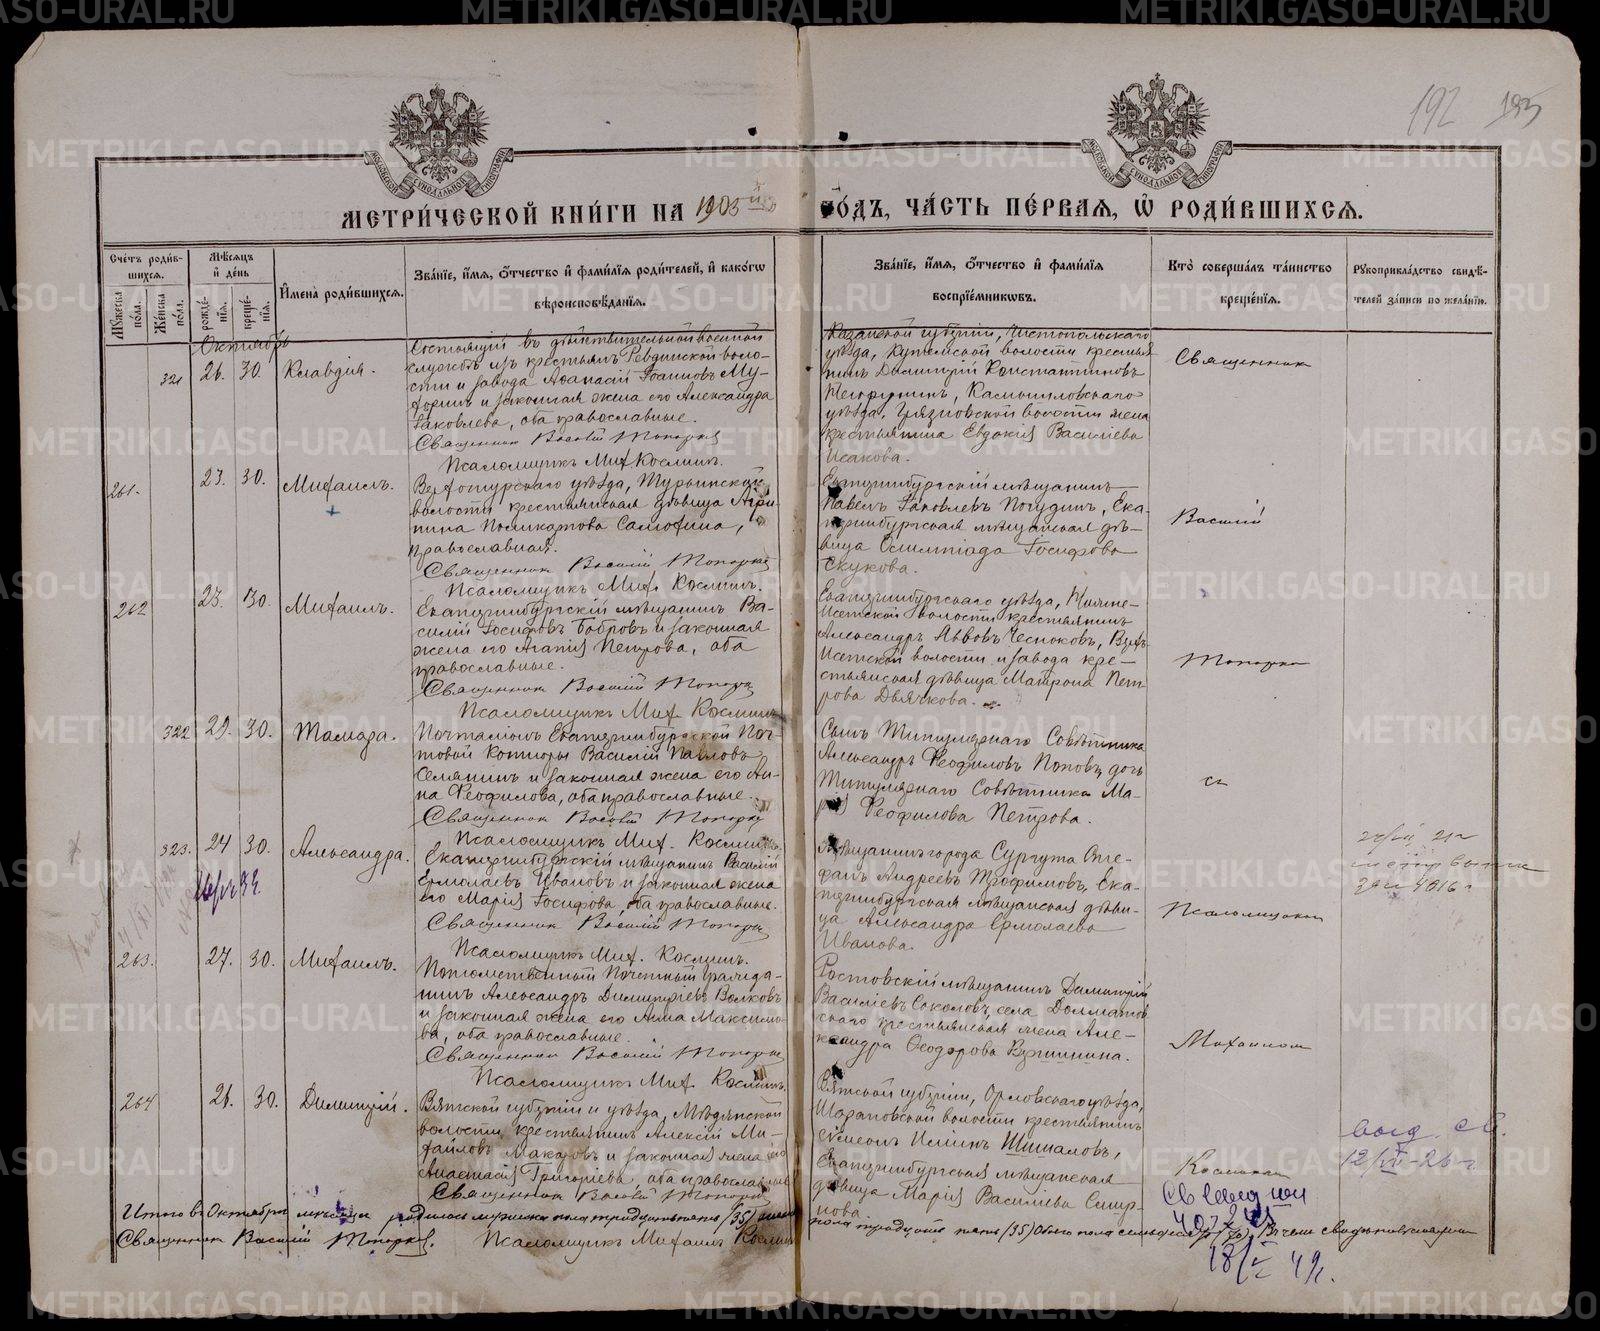 METRIKI.GASO-URAL.RU
192 193
МОСКОВСКОЙ СѴНОДАЛЬНОЙ ТИПОГРАФІИ
МОСКОВСКОЙ СѴНОДАЛЬНОЙ ТИПОГРАФІИ
МЕТРИ́ЧЕСКОЙ КНИ́ГИ НА 1903 й
ГО́ДЪ, ЧА́СТЬ ПЕ́РВАЯ, Ѡ҆ РОДИ́ВШИХСЯ.
Сче́тъ роди́в-
шихся.
Му́жеска по́ла.
Же́нска по́ла.
Мѣ́сяцъ
и҆ де́нь
рожде́-
нія.
креще́-
нія.
И҆мена̀ роди́вшихся.
Зва́нїе, и҆́мя, ѻ҆́тчество и҆ фамі́лїя роди́телей, и҆ како́гѡ
вѣроисповѣ́данїя.
Зва́нїе, и҆́мя, ѻ҆́тчество и҆ фамі́лїя
воспрїе́мникѡвъ.
Кто̀ соверша́лъ та́инство
креще́нїя.
Рукоприкла́дство свидѣ́-
телей за́писи по жела́нїю.
Октябрь
321 26. 30. Клавдія.
Состоящій въ дѣйствительной военной
службѣ изъ крестьянъ Ревдинской воло-
сти и завода Аѳанасій Іоанновъ Му-
форинъ и законная жена его Александра
Іаковлева, оба православные.
Священникъ Василій Топорковъ
Псаломщикъ Мих. Косминъ.
Казанской губерніи, Чистопольскаго
уѣзда, Кутемской волости крестья-
нинъ Димитрій Константиновъ
Камышловскаго
уѣзда, Грязновской волости жена
крестьянина Евдокія Василіева
Исакова.
Священникъ
261. 23. 30. Михаилъ.
Верхотурскаго уѣзда, Турьинской
волости крестьянская дѣвица Агри-
пина Поликарпова Самохина,
православная.
Священникъ Василій Топорковъ
Псаломщикъ Мих. Косминъ.
Екатеринбургскій мѣщанинъ
Павелъ Іаковлевъ Погудинъ, Ека-
теринбургская мѣщанская дѣ-
вица Олимпіада Іосифова
Скукова.
Василій
262 23. 30. Михаилъ.
Екатеринбургскій мѣщанинъ Ва-
силій Іосифовъ Бобровъ и законная
жена его Агапія Петрова, оба
православные.
Священникъ Василій Топорковъ
Псаломщикъ Мих. Косминъ
Екатеринбургскаго уѣзда, Нижне-
Исетской волости крестьянинъ
Александръ Львовъ Чесноковъ, Верхъ-
Исетской волости и завода кре-
стьянская дѣвица Матрона Пет-
рова Дьячкова.
Топорковъ
322 29. 30. Тамара.
Почталіонъ Екатеринбургской Поч-
товой Конторы Василій Павловъ
Селянинъ и законная жена его Ан-
на Ѳеофилова, оба православные.
Священникъ Василій Топорковъ
Псаломщикъ Мих. Косминъ.
Сынъ Титулярнаго Совѣтника
Александръ Ѳеофиловъ Поповъ, дочь
Титулярнаго Совѣтника Ма-
рія Ѳеофилова Петрова.
съ
323. 24 30. Александра.
Екатеринбургскій мѣщанинъ Василій
Ермолаевъ Ивановъ и законная жена
его Марія Іосифова, оба православные.
Священникъ Василій Топорковъ
Псаломщикъ Мих. Косминъ.
Мѣщанинъ города Сургута Сте-
фанъ Андреевъ Трофимовъ, Ека-
теринбургская мѣщанская дѣви-
ца Александра Ермолаева
Иванова.
Псаломщикомъ
263. 27. 30. Михаилъ.
Потомственный Почетный Гражда-
нинъ Александръ Димитріевъ Волковъ
и законная жена его Анна Максимо-
ва, оба православные.
Священникъ Василій Топорковъ
Псаломщикъ Мих. Косминъ.
Ростовскій мѣщанинъ Димитрій
Василіевъ Соколовъ, села Долматов-
скаго крестьянская жена Але-
ксандра Ѳеодорова Вершинина.
Михаиломъ
264 26. 30. Димитрій.
Вятской губерніи и уѣзда, Медянской
волости крестьянинъ Алексій Ми-
хайловъ Макаровъ и законная жена его
Анастасія Григоріева, оба православные
Священникъ Василій Топорковъ
Вятской губерніи, Орловскаго уѣзда,
Шараповской волости крестьянинъ
Симеонъ Ислинъ Шишаловъ,
Екатеринбургская мѣщанская
дѣвица Марія Василіева Смир-
нова.
Косминымъ
выд. св.
12/VI-26 г.
18/V 49.
Итого въ Октябрѣ мѣсяцѣ родилось мужска пола тридцать пять (35) женска
пола тридцать пять (35) обоего пола семьдесят (70). Въ чемъ свидѣтельствуемъ
Священникъ Василій Топорковъ. Псаломщикъ Михаилъ Косминъ